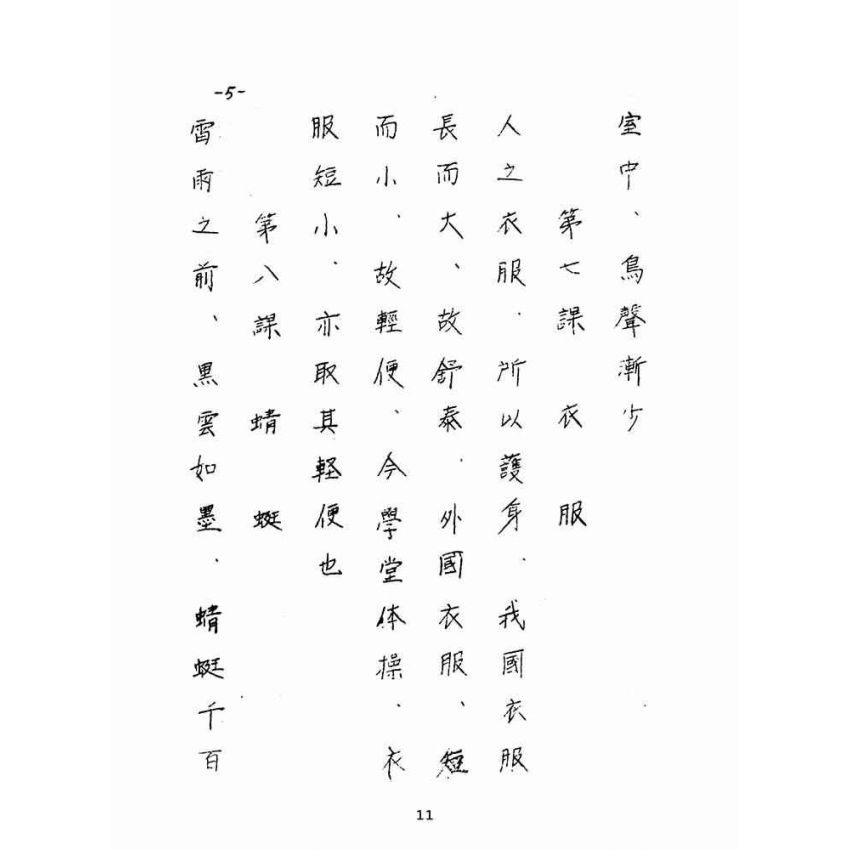 -5-
室中、鳥聲漸少
第七課 衣 服
人之衣服．所以護身．我國衣服
長而大、故舒泰．外國衣服、短
而小、故輕便、今學堂体操、衣
服短小、亦取其軽便也
第八課 蜻 蜓
雷雨之前、黑雲如墨．蜻蜓千百
11